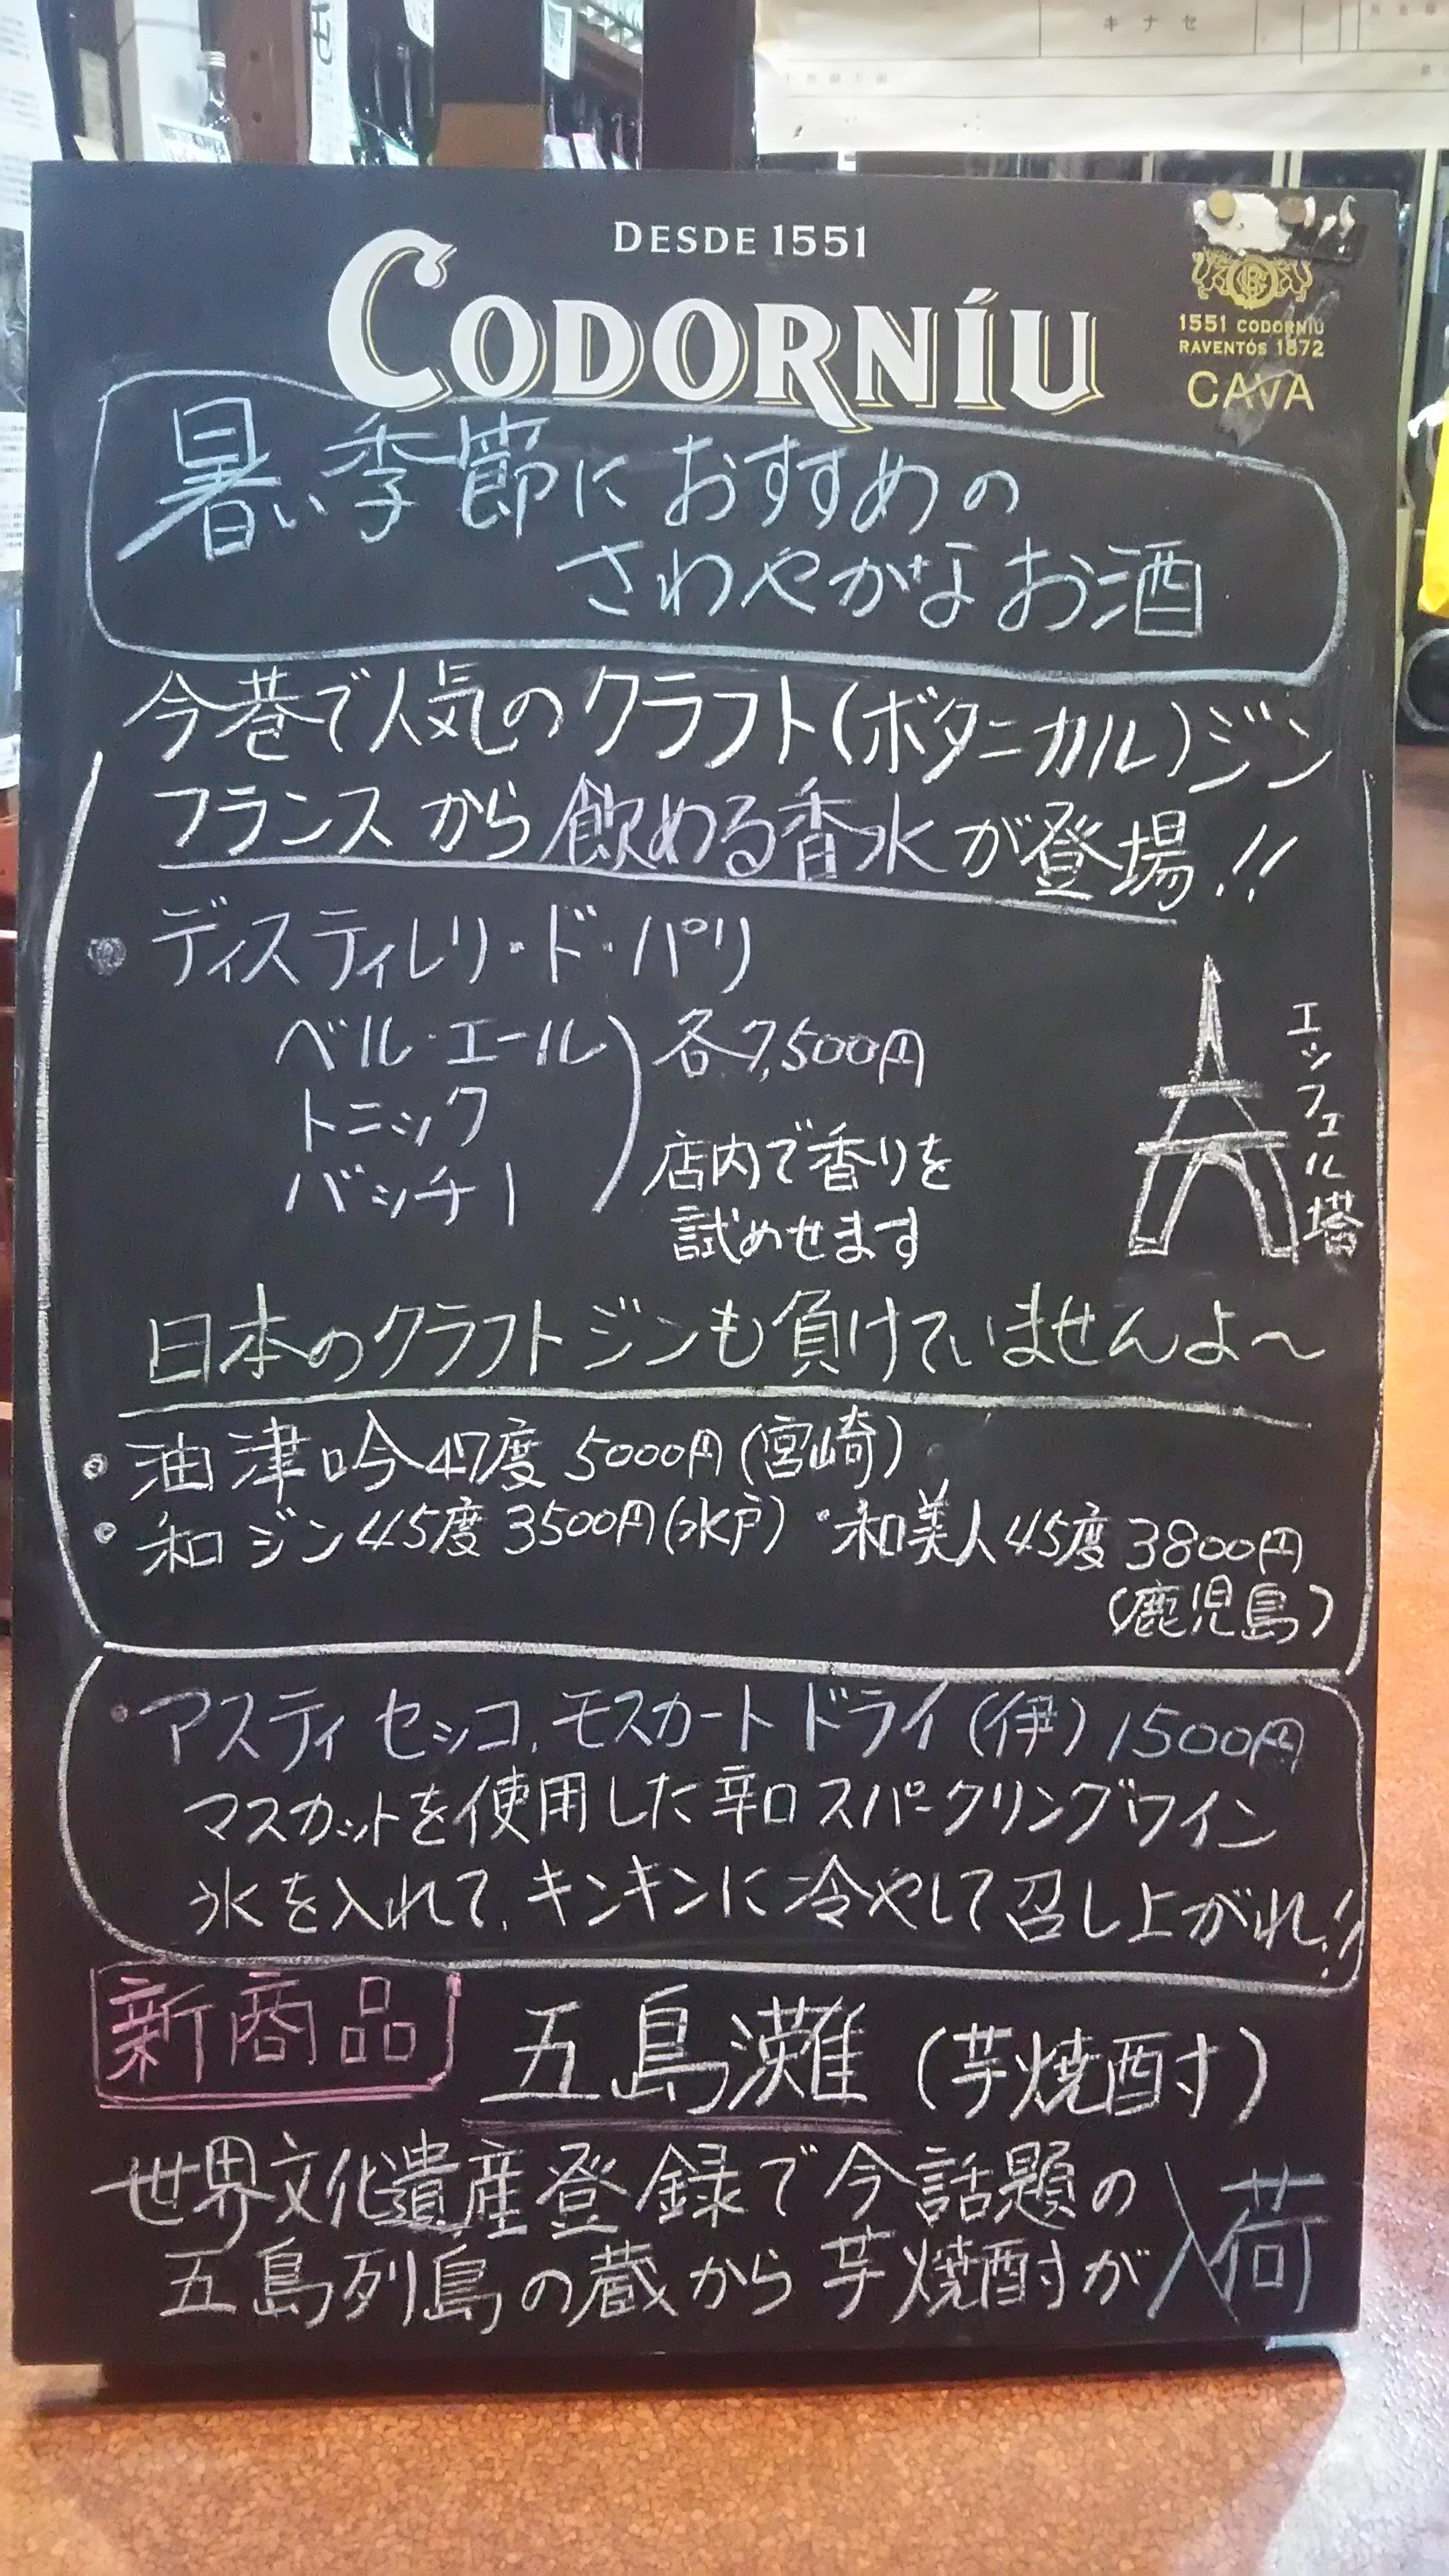 キナセ
DESDE 1551
CODORNÍU
1551 CODORNÍU
RAVENTÓS 1872
CAVA
暑い季節におすすめの
さわやかなお酒
今巷で人気のクラフト(ボタニカル)ジン
フランスから飲める香水が登場!!
・ディスティレリ・ド・パリ
ベル・エール
トニック
バッチー
各7,500円
店内で香りを
試めせます
エッフェル塔
日本のクラフトジンも負けていませんよ〜
・油津吟47度 5000円(宮崎)
・和ジン45度 3500円(水戸) ・和美人45度 3800円
(鹿児島)
・アスティ セッコ、モスカート ドライ(伊) 1500円
マスカットを使用した辛口スパークリングワイン
氷を入れて、キンキンに冷やして召し上がれ!!
新商品 五島灘(芋焼酎)
世界文化遺産登録で今話題の
五島列島の蔵から芋焼酎が入荷